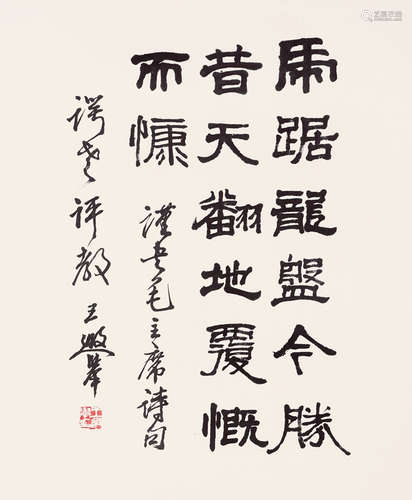 虎踞龍盤今勝
昔天翻地覆慨
而慷
謹書毛主席詩句
諤老評教
王遐舉